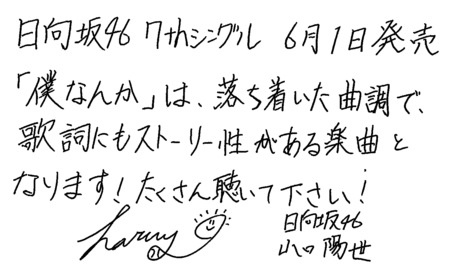 日向坂46 7thシングル 6月1日発売
「僕なんか」は、落ち着いた曲調で、
歌詞にもストーリー性がある楽曲と
なります！たくさん聴いて下さい！
日向坂46
山口 陽世